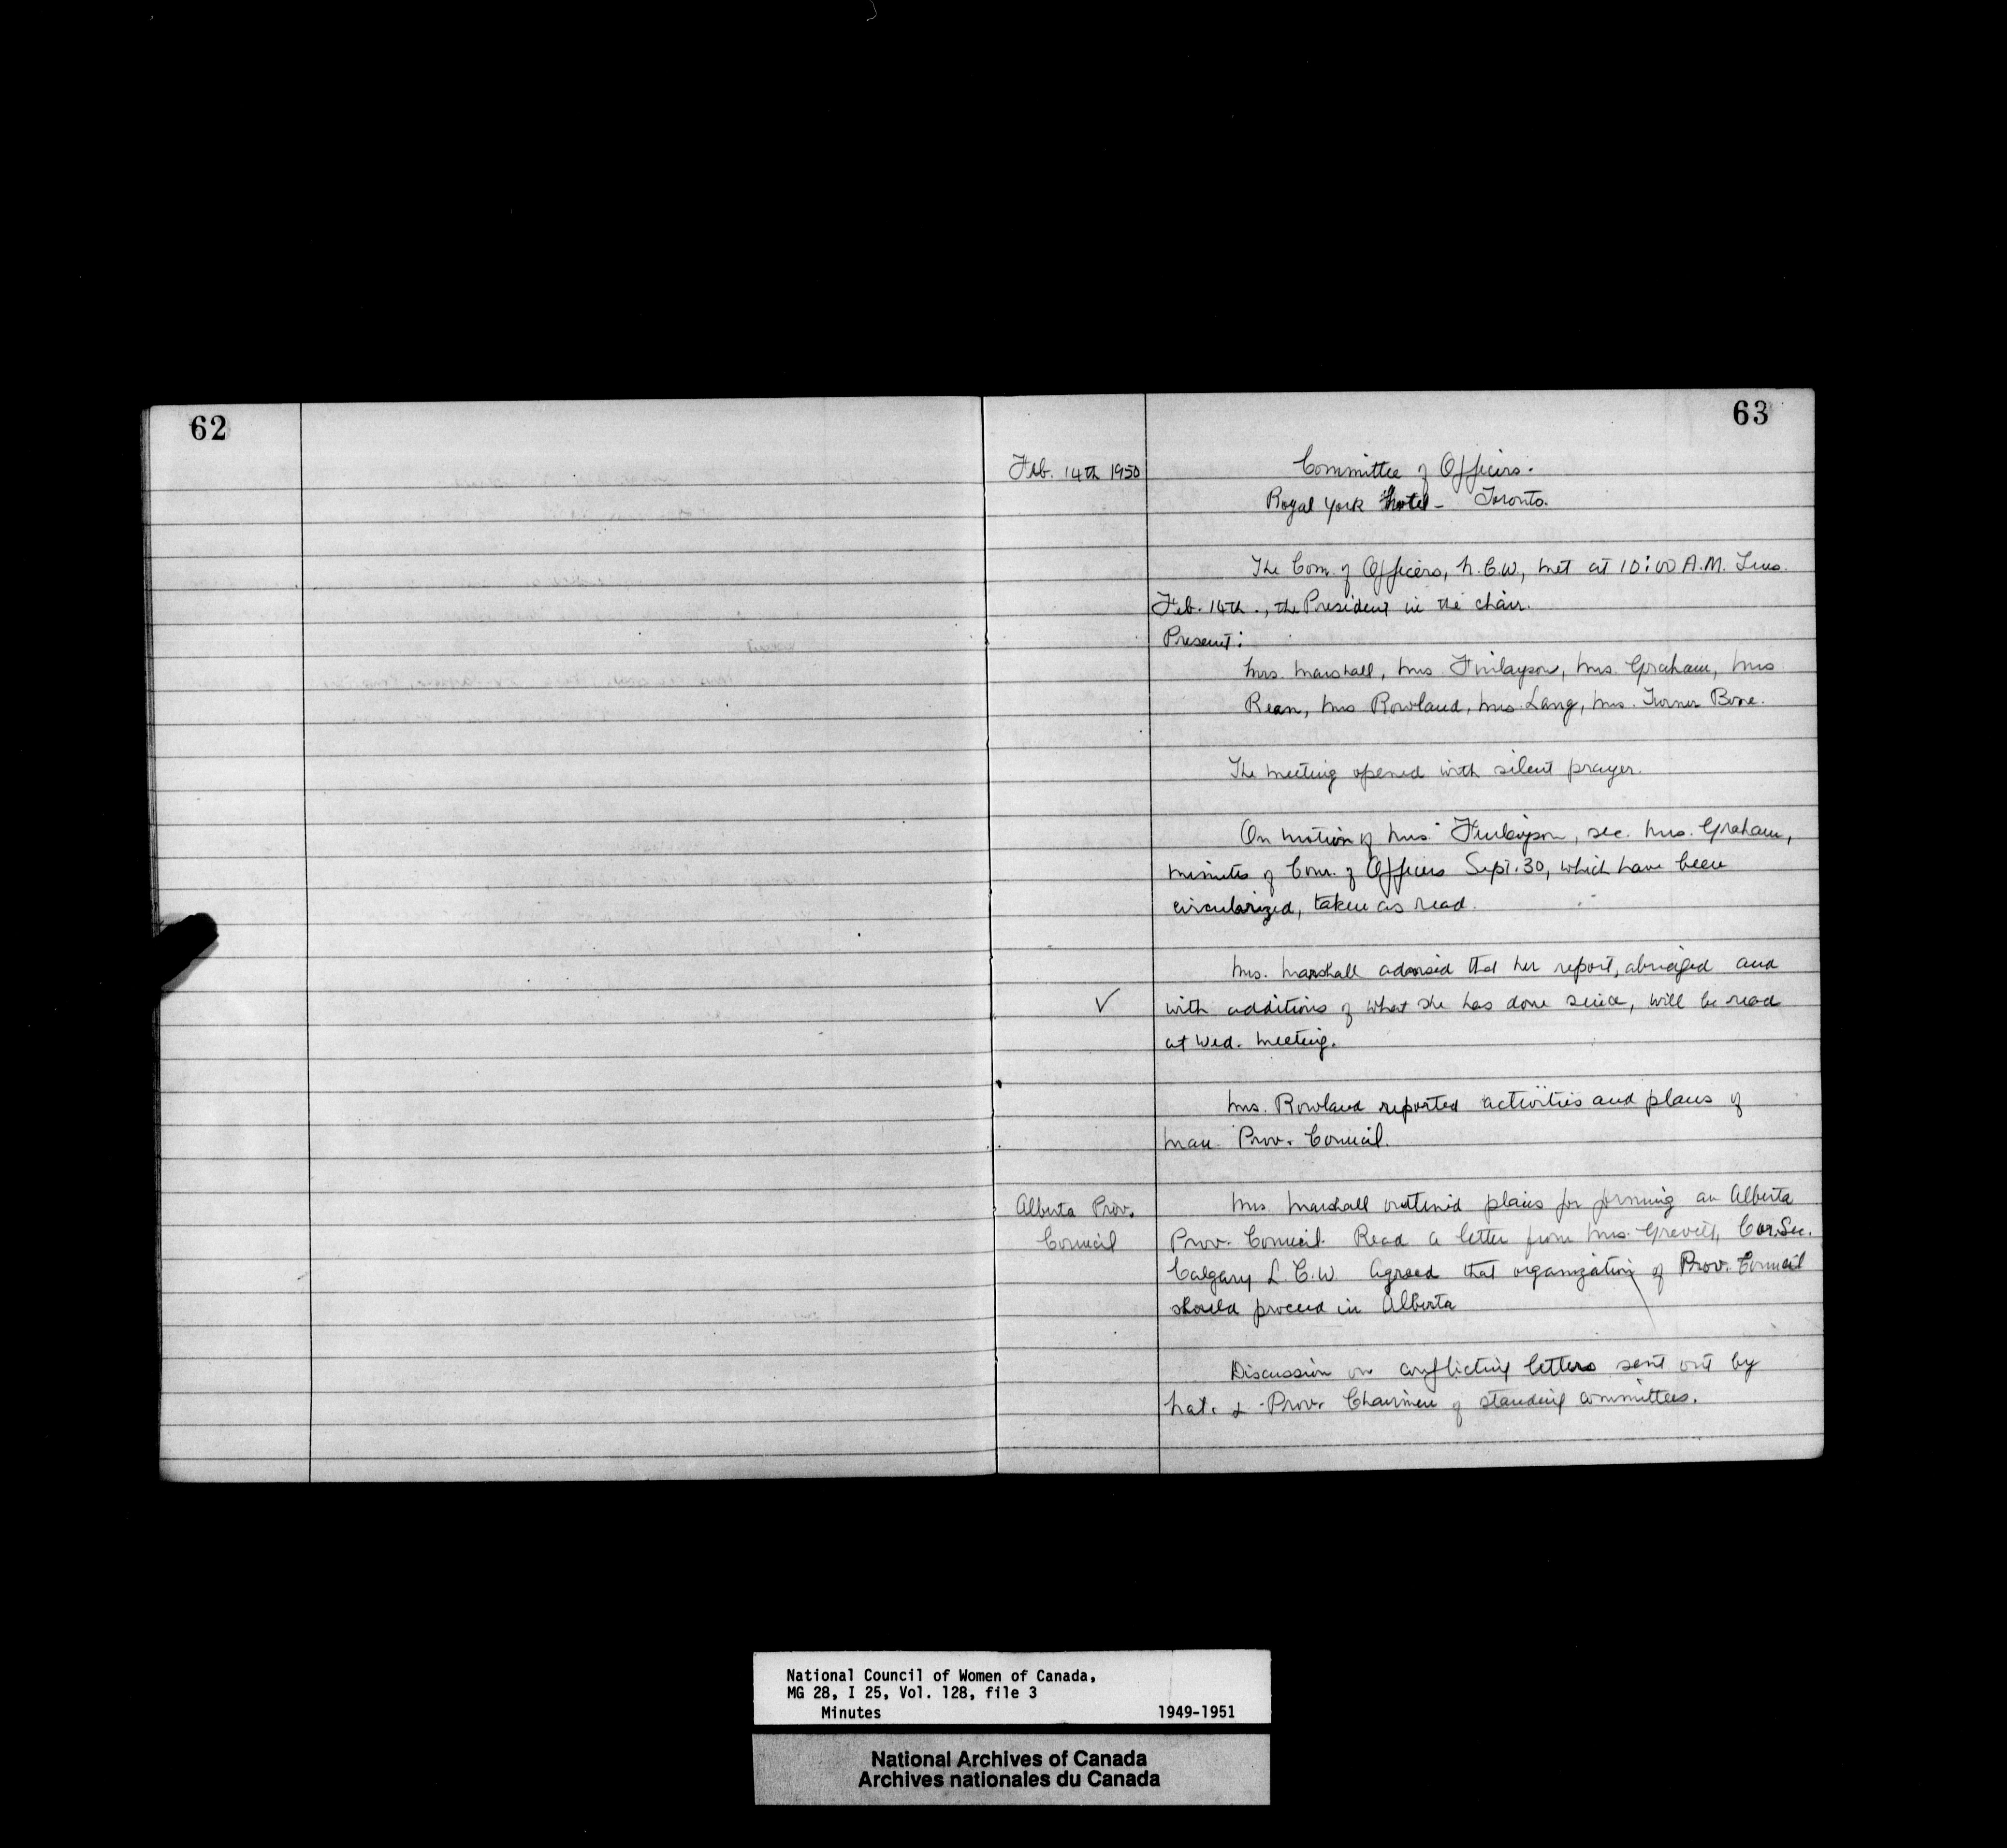 62
63
Feb. 14th 1950
Committee of Officers.
Royal York Hotel - Toronto.
The Com. of Officers, N.C.W, met at 10:00 A.M. Tues.
Feb. 14th., the President in the chair.
Present:
Mrs. Marshall, Mrs. Finlayson, Mrs. Graham, Mrs
Rean, Mrs Rowland, Mrs. Lang, Mrs. Turner Bone.
The meeting opened with silent prayer.
On motion of Mrs. Finlayson, sec. Mrs. Graham,
minutes of Com. of Officers Sept. 30, which have been
circularized, taken as read.
Mrs. Marshall advised that her report, abridged and
✓ with additions of what she has done since, will be read
at Wed. meeting.
Mrs. Rowland reported activities and plans of
Man. Prov. Council.
Alberta Prov.
Council
Mrs. Marshall outlined plans for forming an Alberta
Prov. Council. Read a letter from Mrs. Cor. Sec.
Calgary L.C.W. Agreed that organization of Prov. Council
should proceed in Alberta
Discussion on conflicting letters sent out by
Nat. & Prov. Chairmen of standing committees.
National Council of Women of Canada,
MG 28, I 25, Vol. 128, file 3
Minutes 1949-1951
National Archives of Canada
Archives nationales du Canada